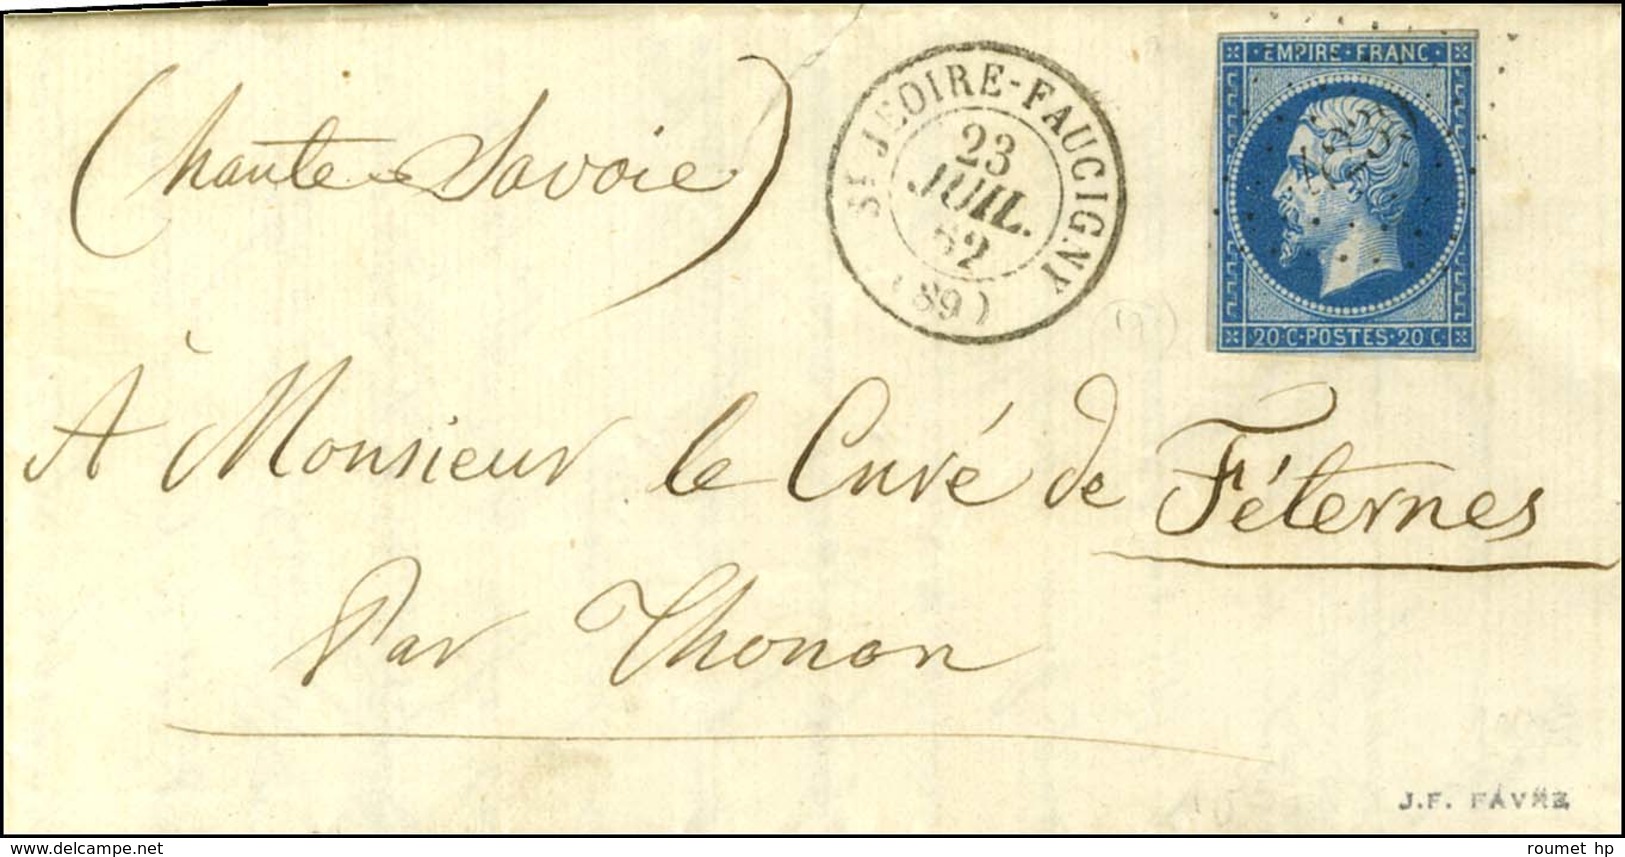 (haute Savoie)
ST JEOIRE-FAUCIGNY
23
JUIL.
62
(89)
EMPIRE · FRANC ·
20 · C · POSTES · 20 C ·
A Monsieur le Curé de Féternes
Par Thonon
J.F. FAVRE
delcampe.net
roumet hp